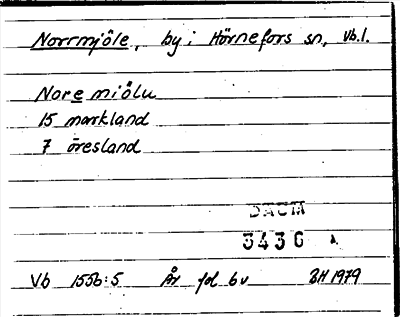 Norrmjöle, by i Hörnefors sn, Vb.l.
Nore miölu
15 markland
7 öresland
DAUM
3436 A
Vb 1556:5 År fol 6v BH 1979